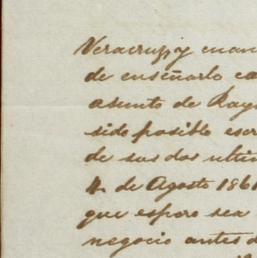 Veracruz, y cuan
de enseñarlo ca
asunto de Ray
sido posible escr
de sus dos ulti
4 de Agosto 1861
que espero sea
negocio antes d